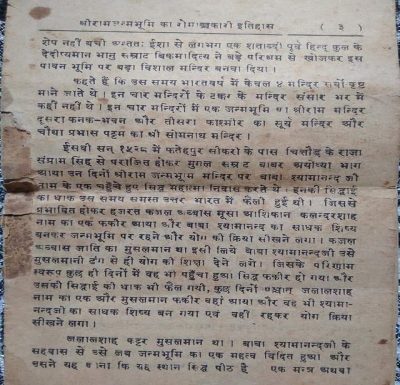 श्रीरामजन्मभूमि का रोमाञ्चकारी इतिहास ( ३ )
शेष नहीं बची अन्ततः ईशा से लगभग एक शताब्दी पूर्व हिन्दू कुल के
दैदीप्यमान भानु सम्राट बिकमादित्य ने बड़े परिश्रम से खोजकर इस
पावन भूमि पर बड़ा विशाल मन्दिर बनवा दिया।
कहते हैं कि उस समय भारतवर्ष में केवल ४ मन्दिर सर्वोत्कृष्ट
माने जाते थे। इन चार मन्दिरों के टक्कर के मन्दिर संसार भर में
कहीं नहीं थे। इन चार मन्दिरों में एक जन्मभूमि का श्रीराम मन्दिर
दूसरा कनक-भवन और तीसरा काश्मीर का सूर्य मन्दिर और
चौथा प्रभास पट्टम का श्री सोमनाथ मन्दिर।
ईसवी सन् १५२८ में फतेहपुर सीकरी के पास चित्तौड़ के राजा
संग्राम सिंह से पराजित होकर मुगल सम्राट बाबर अयोध्या भाग
आया उन दिनों श्रीराम जन्मभूमि मन्दिर पर बाबा श्यामानन्द जी
नाम के एक पहुँचे हुए सिद्ध महात्मा निवास करते थे। इनकी सिद्धाई
का धाक उस समय समस्त उत्तर भारत में फैली हुई थी। जिससे
प्रभावित होकर हजरत कजल अब्बास मूसा आशिकान कलन्दरशाह
नाम का एक फकीर आया और बाबा श्यामानन्द का साधक शिष्य
बनकर जन्मभूमि पर रहने और योग की क्रिया सीखने लगा। कजल
अब्बास जाति का मुसलमान था इसी लिये बाबा श्यामानन्दजी उसे
मुसलमानी ढंग से ही योग की शिक्षा देने लगे। जिसके परिणाम
स्वरूप कुछ ही दिनों में वह भी पहुँचा हुआ सिद्ध फकीर हो गया और
उसकी सिद्धाई की धाक भी फैल गयी, कुछ दिनों पश्चात् जलालशाह
नाम का एक और मुसलमान फकीर वहाँ आया और वह भी श्यामा-
नन्दजी का साधक शिष्य बन गया एवं वहीं रहकर योग क्रिया
सीखने लगा।
जलालशाह कट्टर मुसलमान था। बाबा श्यामानन्दजी के
सहवास से उसे जब जन्मभूमि का एक महत्व विदित हुआ और
उसने यह जाना कि यह स्थान सिद्ध पीठ है एक मन्त्र अथवा